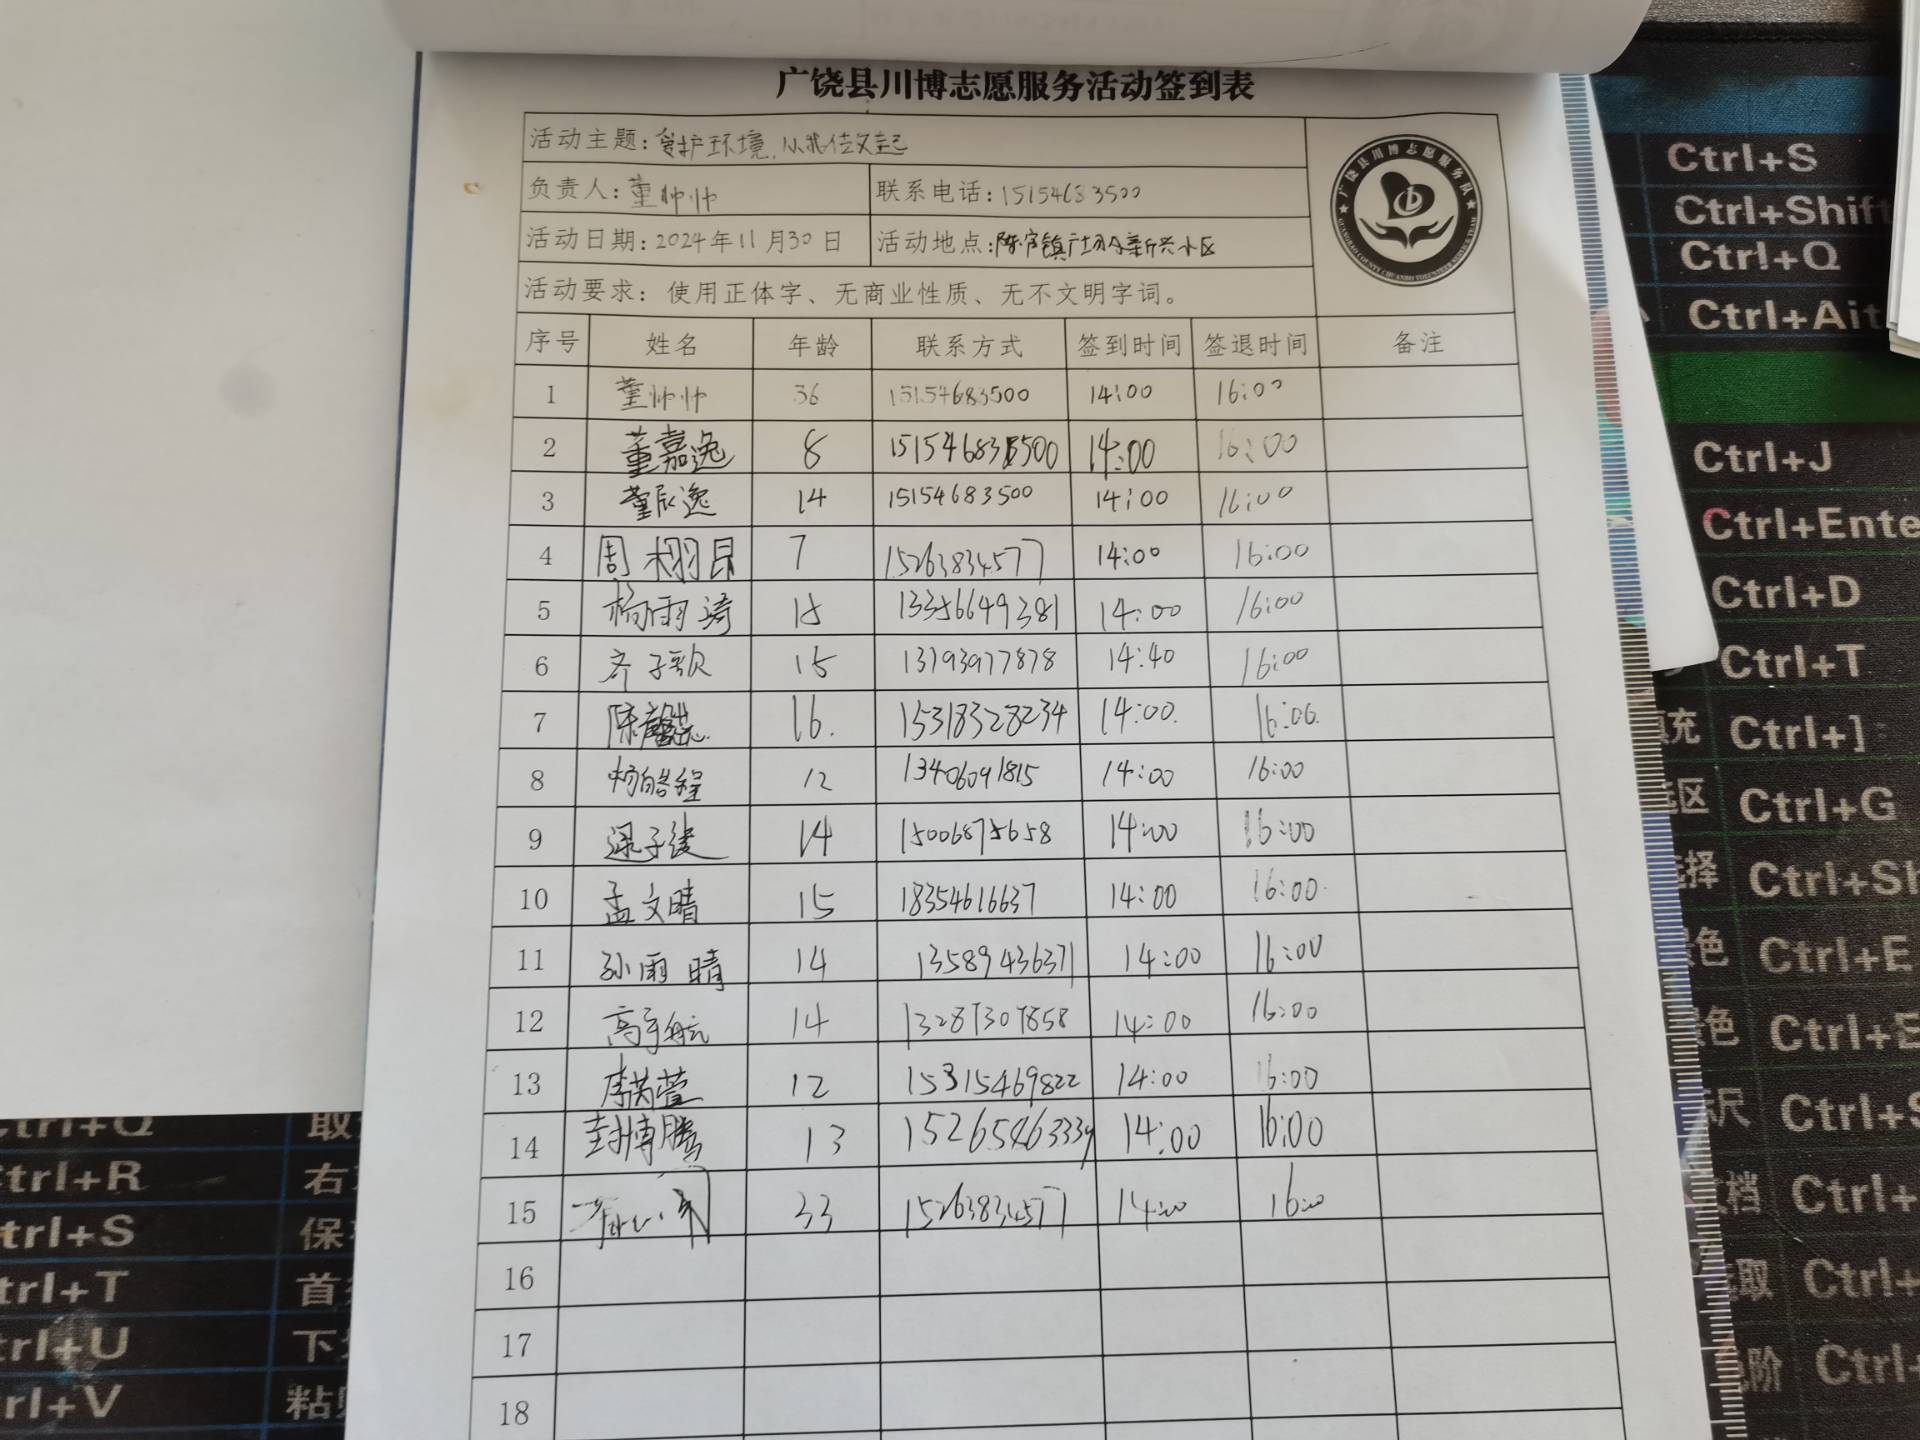 广饶县川博志愿服务活动签到表
活动主题：爱护环境，从我做起
负责人：董帅帅 联系电话：15154683500
活动日期：2024年11月30日 活动地点：陈官镇广场今新兴小区
活动要求：使用正体字、无商业性质、无不文明字词。
序号 姓名 年龄 联系方式 签到时间 签退时间 备注
1 董帅帅 36 15154683500 14:00 16:00
2 董嘉逸 8 15154683500 14:00 16:00
3 董辰逸 14 15154683500 14:00 16:00
4 周栩昂 7 15263834577 14:00 16:00
5 杨雨琦 15 13356649381 14:00 16:00
6 齐子歌 15 13793977878 14:40 16:00
7 陈 16. 15318328234 14:00. 16:00.
8 杨皓程 12 13406091815 14:00 16:00
9 梁子健 14 15006875658 14:00 16:00
10 孟文晴 15 18354616637 14:00 16:00
11 孙雨晴 14 13589436371 14:00 16:00
12 高宇航 14 13287307858 14:00 16:00
13 李芮萱 12 15315469822 14:00 16:00
14 封博腾 13 15265463339 14:00 16:00
15 33 15263834577 14:00 16:00
16
17
18
Ctrl+S
Ctrl+Shift
Ctrl+Q
Ctrl+
Ctrl+J
Ctrl+Ente
Ctrl+D
Ctrl+T
填充 Ctrl+]
选区 Ctrl+G
选择 Ctrl+Sh
Ctrl+E
Ctrl+E
标尺 Ctrl+S
文档 Ctrl+
选取 Ctrl+
色阶 Ctrl+
Ctrl+Q 取
Ctrl+R 右
Ctrl+S 保
Ctrl+T 首
Ctrl+U 下
Ctrl+V 粘贴
广饶县川博志愿服务队